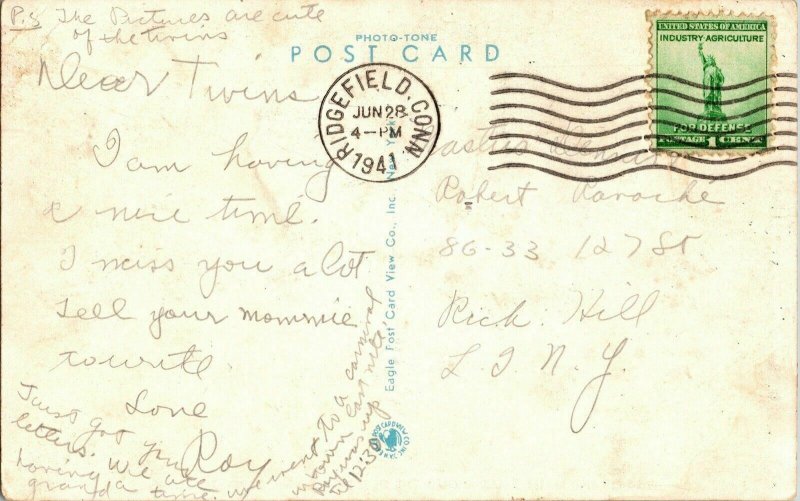 P.S The Pictures are cute
of the twins
PHOTO-TONE
POST CARD
UNITED STATES OF AMERICA
INDUSTRY·AGRICULTURE
FOR DEFENSE
POSTAGE 1 CENT
RIDGEFIELD, CONN.
JUN 28
4-PM
1941
Dear Twins
I am having
a nice time.
I miss you a lot
Tell your mommie
to write.
Love
Roy
Robert
86-33 127 St
Rich. Hill
L. I. N. Y.
Just got your
letters. We are
having a
grand time. we went to a carnival
in town last nite.
was up
til 12:30
Eagle Post Card View Co., Inc., New York